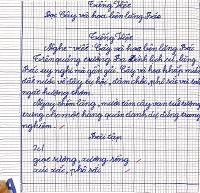 Tiếng Việt
Đọc: Cây và hoa bên lăng Bác
Tiếng Việt
Nghe - viết: Cây và hoa bên lăng Bác
Trên quảng trường Ba Đình lịch sử, lăng
Bác uy nghi mà gần gũi. Cây và hoa khắp miền
đất nước về đây tụ hội, đâm chồi, phô sắc và toả
ngát hương thơm.
Ngay thềm lăng, mười tám cây vạn tuế tượng
trưng cho một hàng quân danh dự đứng trang
nghiêm.
Bài tập